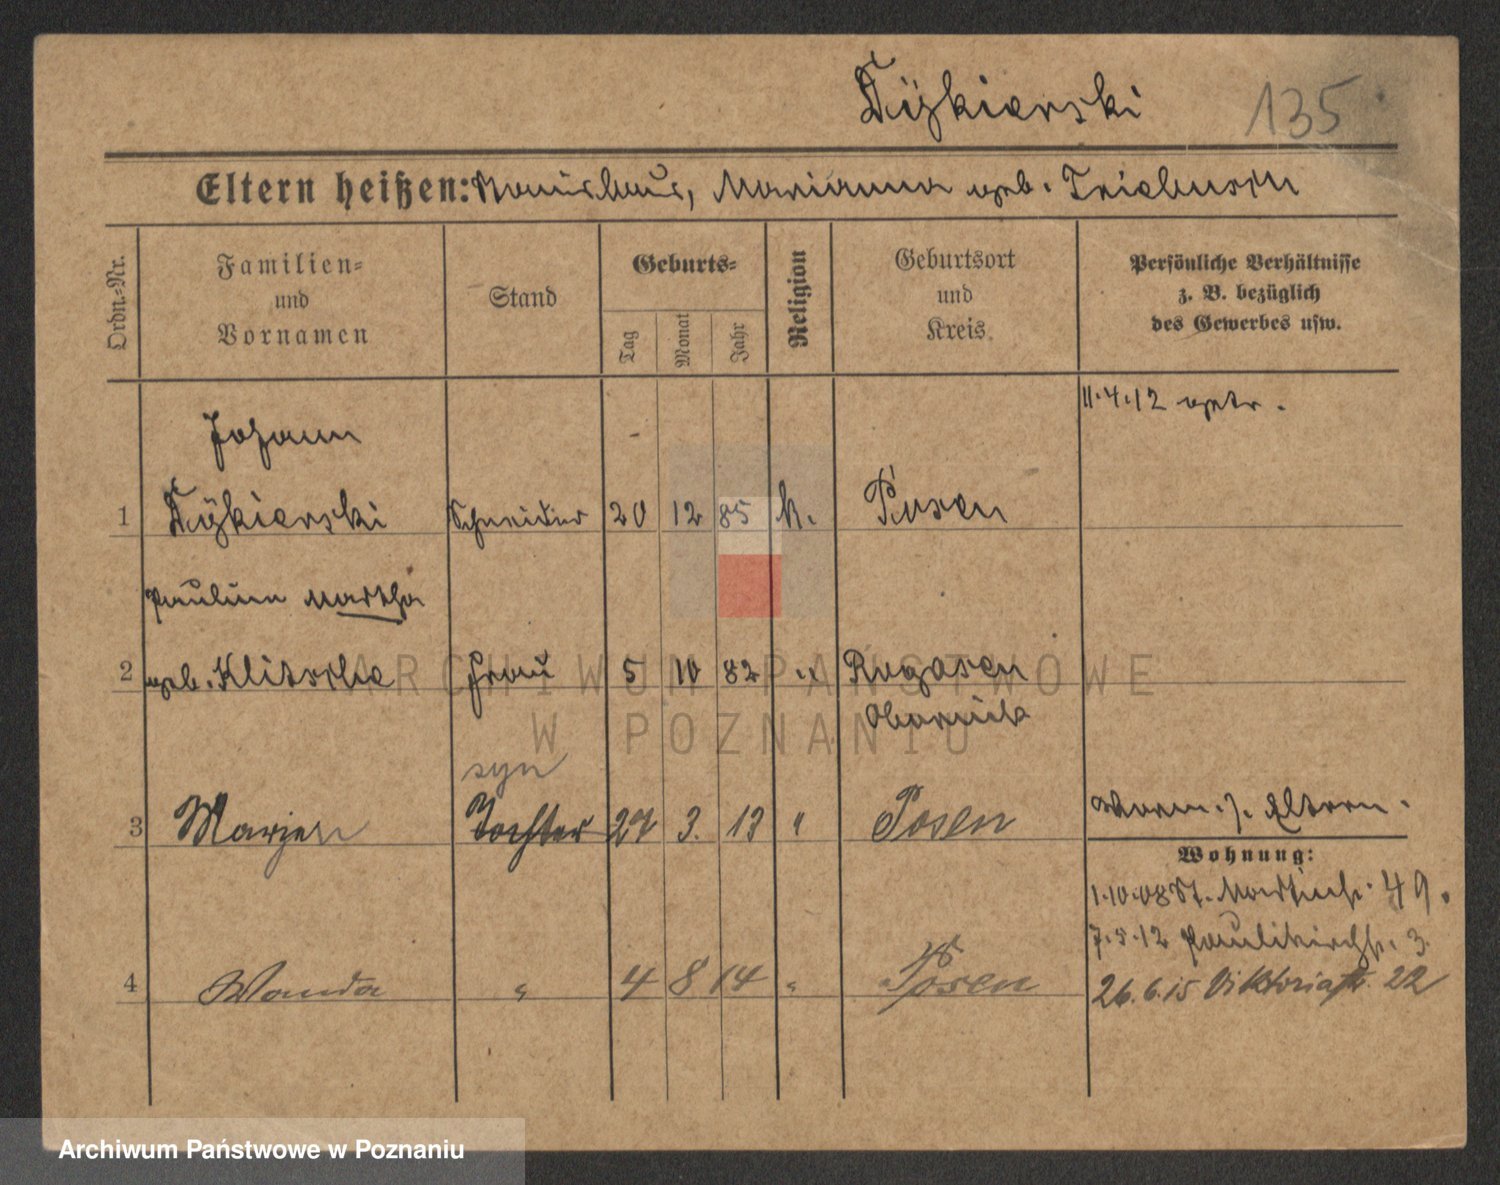 Dÿzkierski 135
Eltern heißen: Stanislaus, Marianna geb. Triebusin
Ordn.-Nr.
Familien-
und
Vornamen
Stand
Geburts-
Tag
Monat
Jahr
Religion
Geburtsort
und
Kreis.
Persönliche Verhältnisse
z. B. bezüglich
des Gewerbes usw.
11.4.12 getr.
Johann
1 Dÿzkierski Schneider 20 12 85 k. Posen
Pauline Martha
2 geb. Klitschke Frau 5 10 82 " Rogasen
Obornik
syn
3 Marjen Tochter 27 3. 13 " Posen
Vorm. z. Eltern.
Wohnung:
1.10.08 St. Martinstr. 49.
7.5.12 Paulikirchstr. 3.
4 Wanda " 4 8 14 " Posen
26.6.15 Viktoriastr. 22
ARCHIWUM PAŃSTWOWE
W POZNANIU
Archiwum Państwowe w Poznaniu